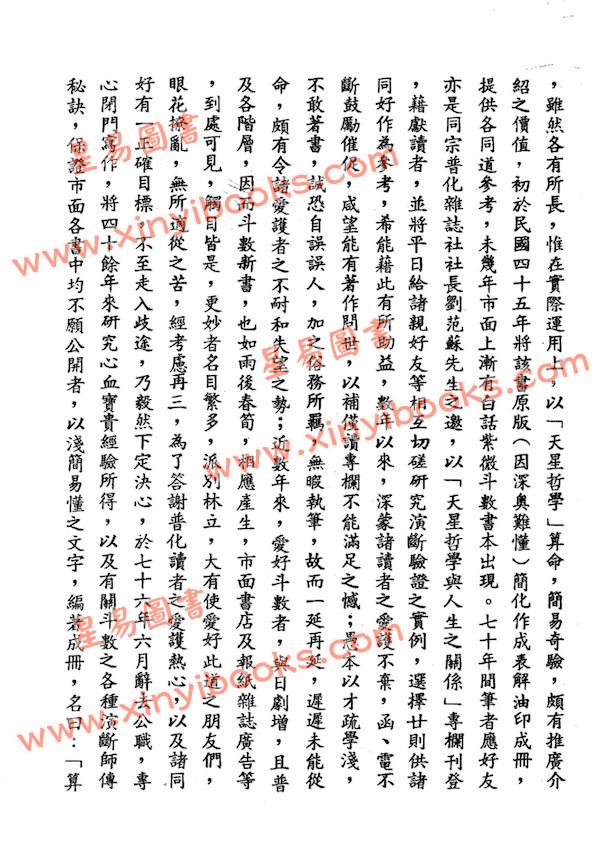 ，雖然各有所長，惟在實際運用上，以「天星哲學」算命，簡易奇驗，頗有推廣介
紹之價值，初於民國四十五年將該書原版（因深奧難懂）簡化作成表解油印成冊，
提供各同道參考，未幾年市面上漸有白話紫微斗數書本出現。七十年間筆者應好友
亦是同宗普化雜誌社社長劉范蘇先生之邀，以「天星哲學與人生之關係」專欄刊登
，藉獻讀者，並將平日給諸親好友等相互切磋研究演斷驗證之實例，選擇廿則供諸
同好作為參考，希能藉此有所助益，數年以來，深蒙諸讀者之愛護不棄，函、電不
斷鼓勵催促，咸望能有著作問世，以補僅讀專欄不能滿足之憾；愚本以才疏學淺，
不敢著書，誠恐自誤誤人，加之俗務所羈，無暇執筆，故而一延再延，遲遲未能從
命，頗有令諸愛護者之不耐和失望之勢；近數年來，愛好斗數者，與日劇增，且普
及各階層，因而斗數新書，也如雨後春筍，相應產生，市面書店及報紙雜誌廣告等
，到處可見，觸目皆是，更妙者名目繁多，派別林立，大有使愛好此道之朋友們，
眼花撩亂，無所適從之苦，經考慮再三，為了答謝普化讀者之愛護熱心，以及諸同
好有一正確目標，不至走入歧途，乃毅然下定決心，於七十六年六月辭去公職，專
心閉門寫作，將四十餘年來研究心血寶貴經驗所得，以及有關斗數之各種演斷師傳
秘訣，保證市面各書中均不願公開者，以淺簡易懂之文字，編著成冊，名曰：「算
星易圖書
www.xinyibooks.com
星易圖書
www.xinyibooks.com
星易圖書
www.xinyibooks.com